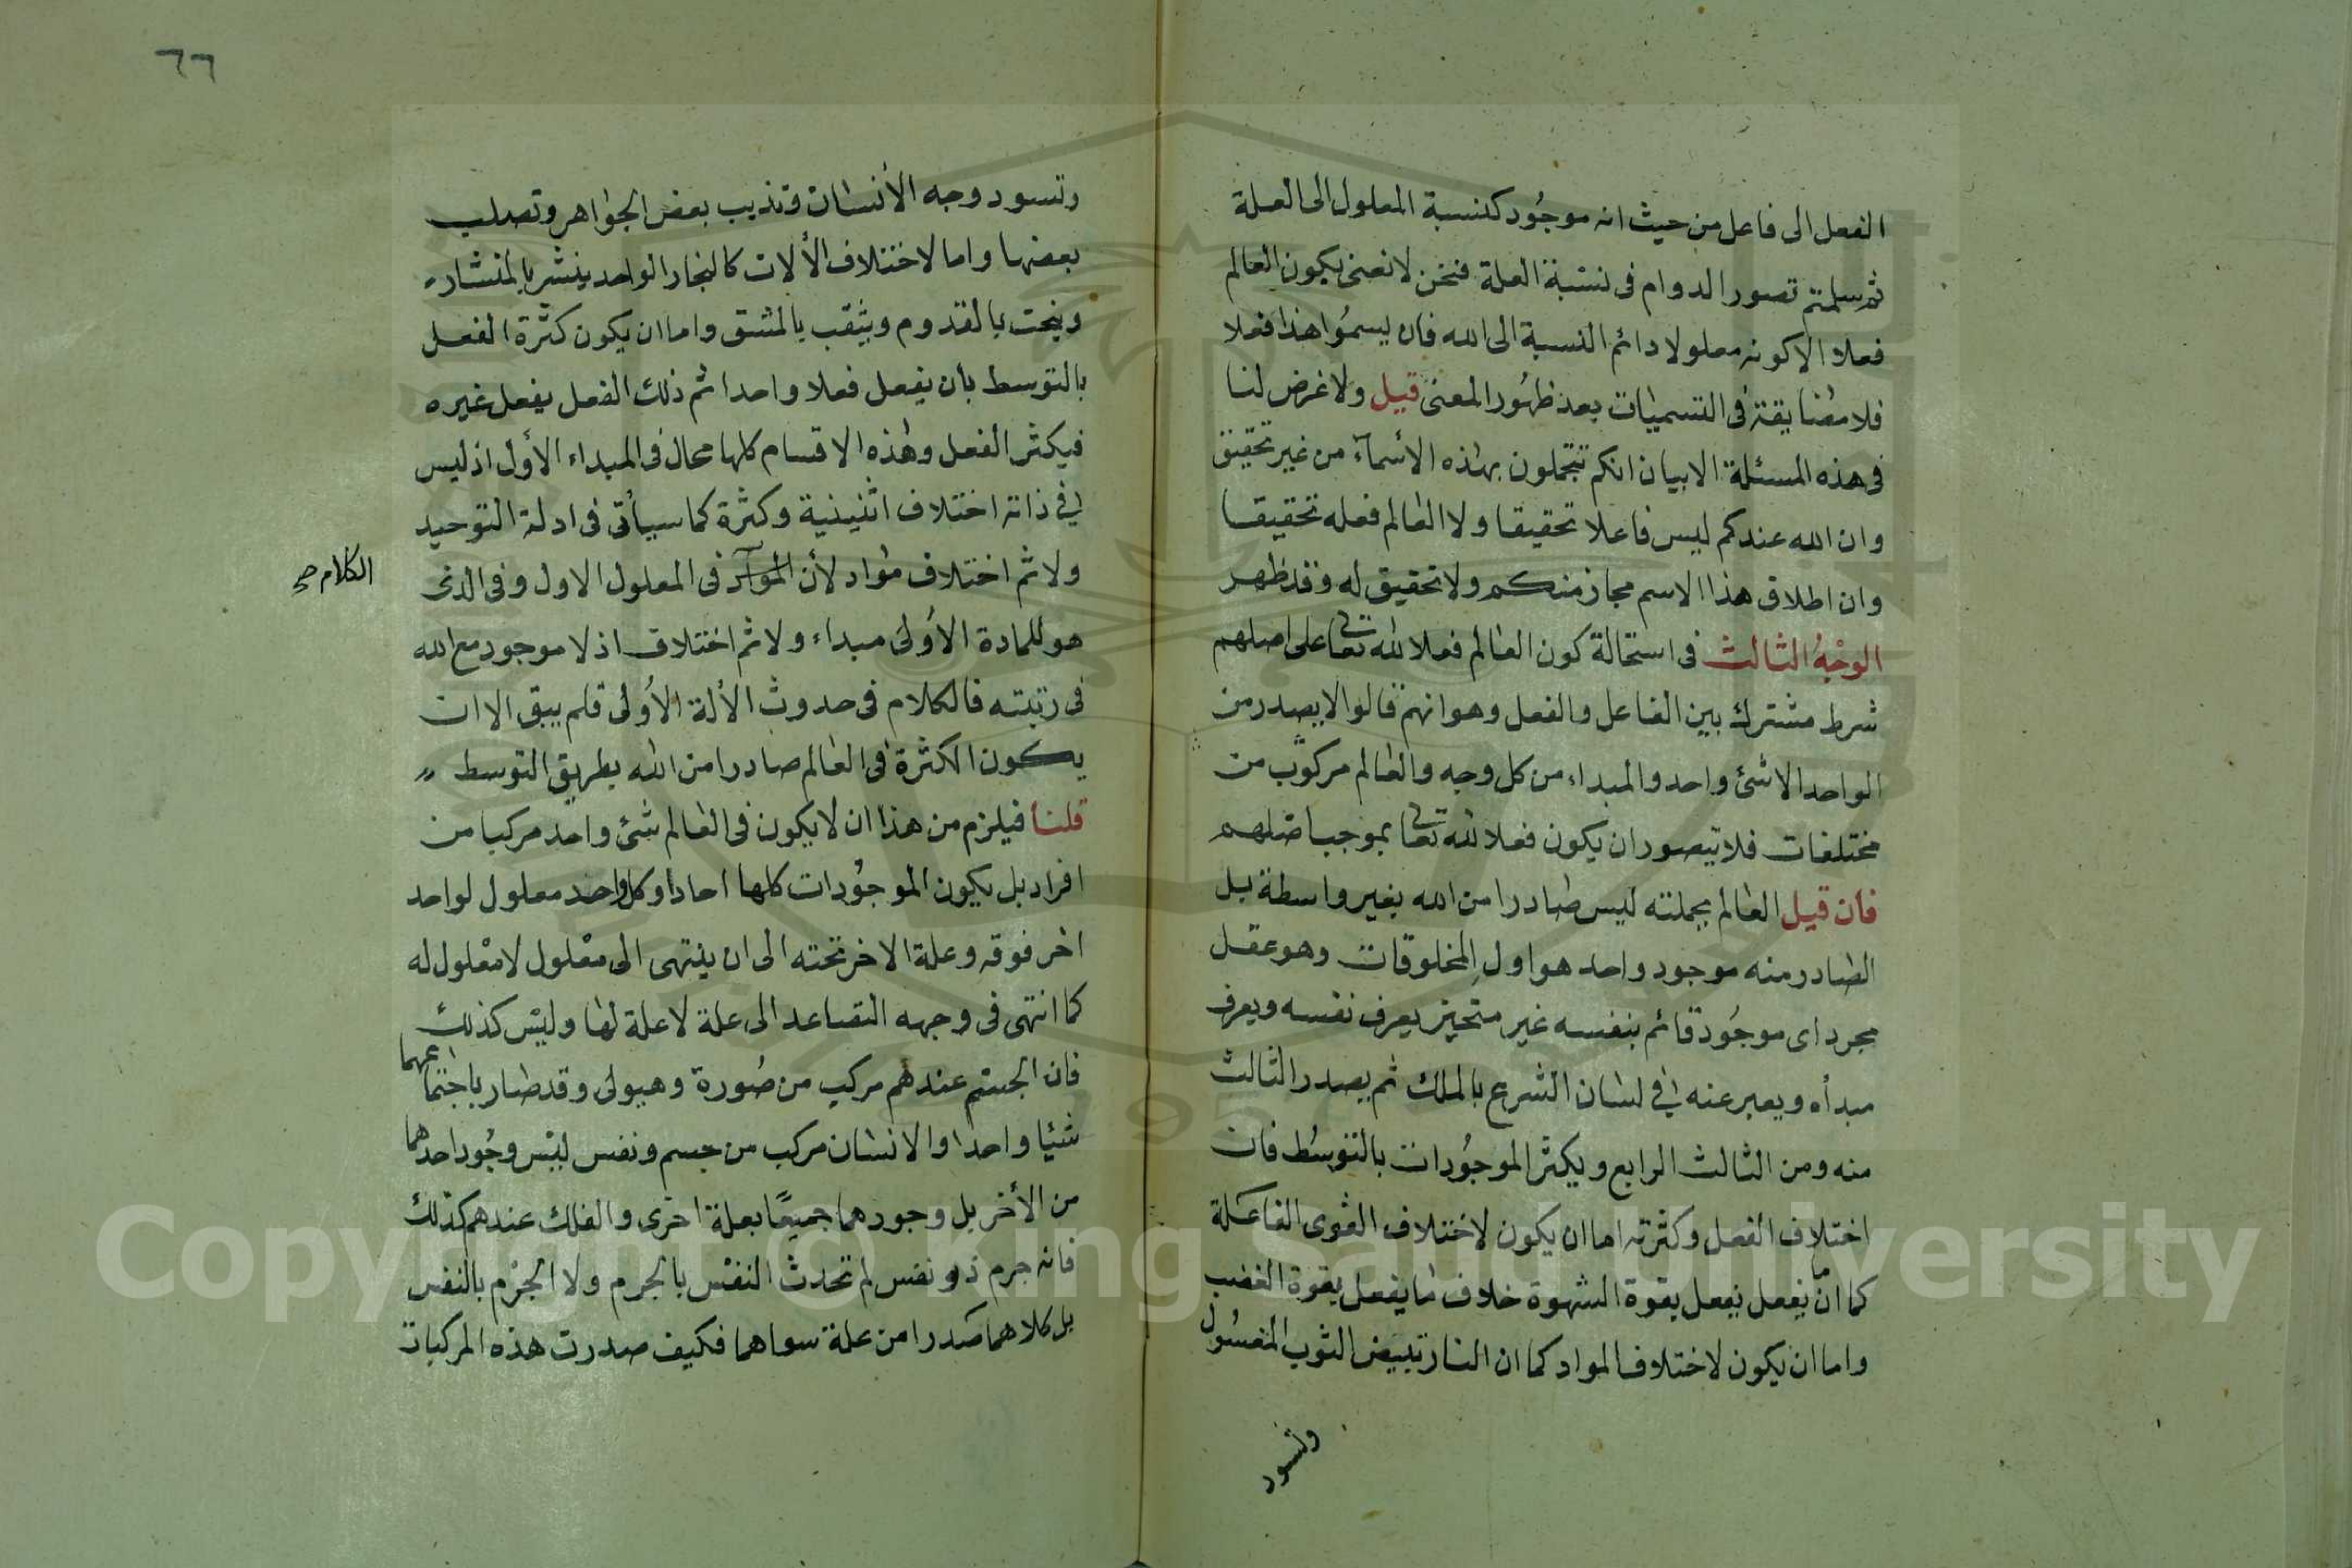 الفعل الى فاعل من حيث انه موجود كنسبة المعلول الى العلة
ثم سلمتم تصور الدوام فى نسبة العلة فنحن لا نعنى بكون العالم
فعلا الا كونه معلولا دائم النسبة الى الله فان يسموا هذا فعلا
فلا مضايقة فى التسميات بعد ظهور المعنى قيل ولا غرض لنا
فى هذه المسئلة الا بيان انكم تتجملون بهذه الأسماء من غير تحقيق
وان الله عندكم ليس فاعلا تحقيقا ولا العالم فعله تحقيقا
وان اطلاق هذا الاسم مجاز منكم ولا تحقيق له وقد ظهر
الوجه الثالث فى استحالة كون العالم فعلا لله تعالى على اصلهم
شرط مشترك بين الفاعل والفعل وهو انهم قالوا لا يصدر من
الواحد الا شئ واحد والمبداء من كل وجه والعالم مركوب من
مختلفات فلا يتصور ان يكون فعلا لله تعالى بموجب اصلهم
فان قيل العالم بجملته ليس صادرا من الله بغير واسطة بل
الصادر منه موجود واحد هو اول المخلوقات وهو عقل
مجرد اى موجود قائم بنفسه غير متحيز يعرف نفسه ويعرف
مبدأه ويعبر عنه فى لسان الشرع بالملك ثم يصدر الثالث
منه ومن الثالث الرابع ويكثر الموجودات بالتوسط فان
اختلاف الفعل وكثرته اما ان يكون لاختلاف القوى الفاعلة
كما ان ما يفعل يفعل بقوة الشهوة خلاف ما يفعل بقوة الغضب
واما ان يكون لاختلاف المواد كما ان النار تبيض الثوب المغسول
وتسود
٦٦
وتسود وجه الأنسان وتذيب بعض الجواهر وتصلب
بعضها واما لاختلاف الألات كالنجار الواحد ينشر بالمنشار
وينحت بالقدوم ويثقب بالمثقب واما ان يكون كثرة الفعل
بالتوسط بأن يفعل فعلا واحدا ثم ذلك الفعل يفعل غيره
فيكثر الفعل وهذه الاقسام كلها محال فى المبداء الأول اذ ليس
فى ذاته اختلاف اثنينية وكثرة كما سيأتى فى ادلة التوحيد
ولا ثم اختلاف مواد لأن المواد فى المعلول الاول وفى الذى
الكلام صح
هو للمادة الأولى مبداء ولا ثم اختلاف اذ لا موجود مع الله
فى رتبته فالكلام فى حدوث الألة الأولى فلم يبق الا ان
يكون الكثرة فى العالم صادرا من الله بطريق التوسط
قلنا فيلزم من هذا ان لا يكون فى العالم شئ واحد مركبا من
افراد بل يكون الموجودات كلها احادا وكل واحد معلول لواحد
اخر فوقه وعلة الاخر تحته الى ان ينتهى الى معلول لا معلول له
كما انتهى فى وجهه التصاعد الى علة لا علة لها وليس كذلك
فان الجسم عندهم مركب من صورة وهيولى وقد صار باجتماعهما
شئيا واحدا والانسان مركب من جسم ونفس ليس وجود احدهما
من الأخر بل وجودهما جميعًا بعلة اخرى والفلك عندهم كذلك
فانه جرم ذو نفس لم تحدث النفس بالجرم ولا الجرم بالنفس
بل كلاهما صدرا من علة سواهما فكيف صدرت هذه المركبات
Copyright © King Saud University
1957